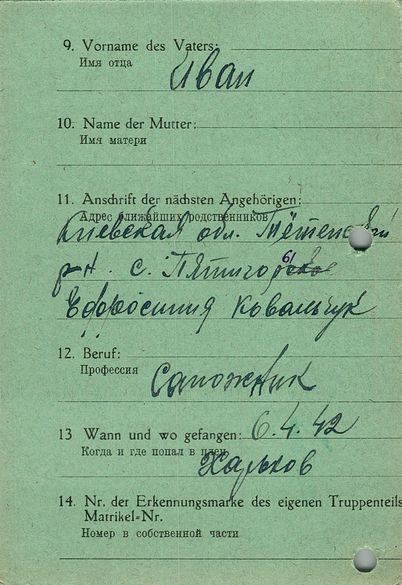 9. Vorname des Vaters:
Имя отца
Иван
10. Name der Mutter:
Имя матери
11. Anschrift der nächsten Angehörigen:
Адрес ближайших родственников
Киевская обл. Тетеевский
р-н. с. Пятигоры
Ефросиния Ковальчук
12. Beruf:
Профессия
Сапожник
13 Wann und wo gefangen: 6.4.42
Когда и где попал в плен
Харьков
14. Nr. der Erkennungsmarke des eigenen Truppenteils
Matrikel-Nr.
Номер в собственной части